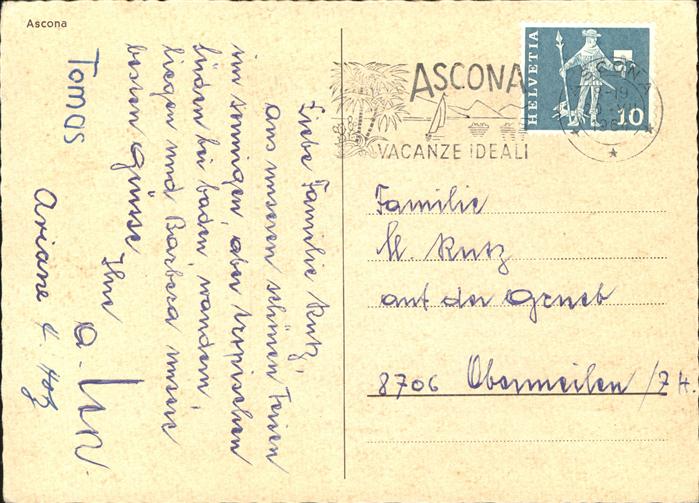 Ascona
Liebe Familie Kutz,
aus unseren schönen Ferien
im sonnigen, aber tropischen
Süden bei baden, wandern,
liegen und Barbera unsere
besten Grüsse
Ihr
a.
Tomas
Ariane
ASCONA
VACANZE IDEALI
HELVETIA
10
ASCONA
19
Familie
M. Kutz
auf der Grueb
8706 Obermeilen / ZH.